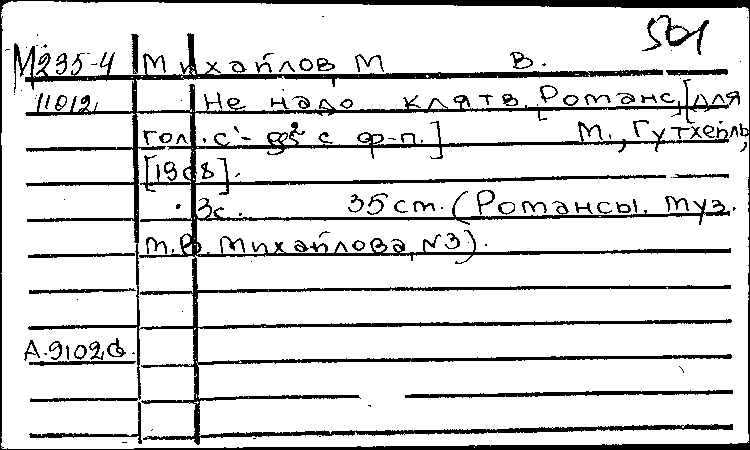 501
М235-4 Михайлов, М В.
11012, Не надо клятв. [Романс, [для
гол. с'- g² с ф-п.] М., Гутхейль,
[1908].
3с. 35 ст. (Романсы. муз.
М.В. Михайлова, N3).